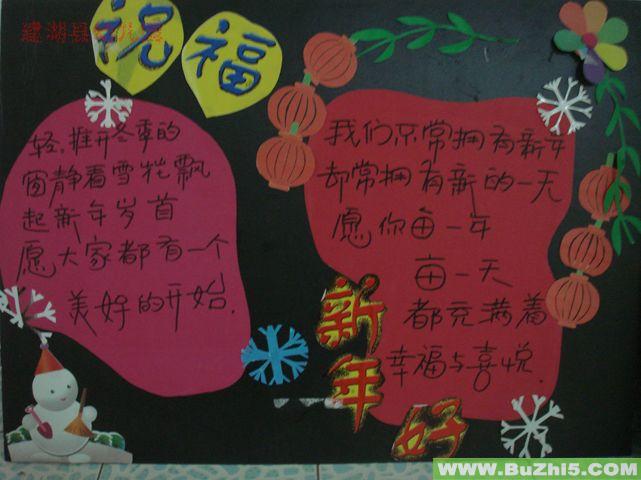 建湖县
祝福
轻.推开冬季的
窗静看雪花飘
起新年岁首
愿大家都有一个
美好的开始.
我们不常拥有新年
却常拥有新的一天
愿你每一年
每一天
都充满着
幸福与喜悦.
新年好
www.BuZhi5.com